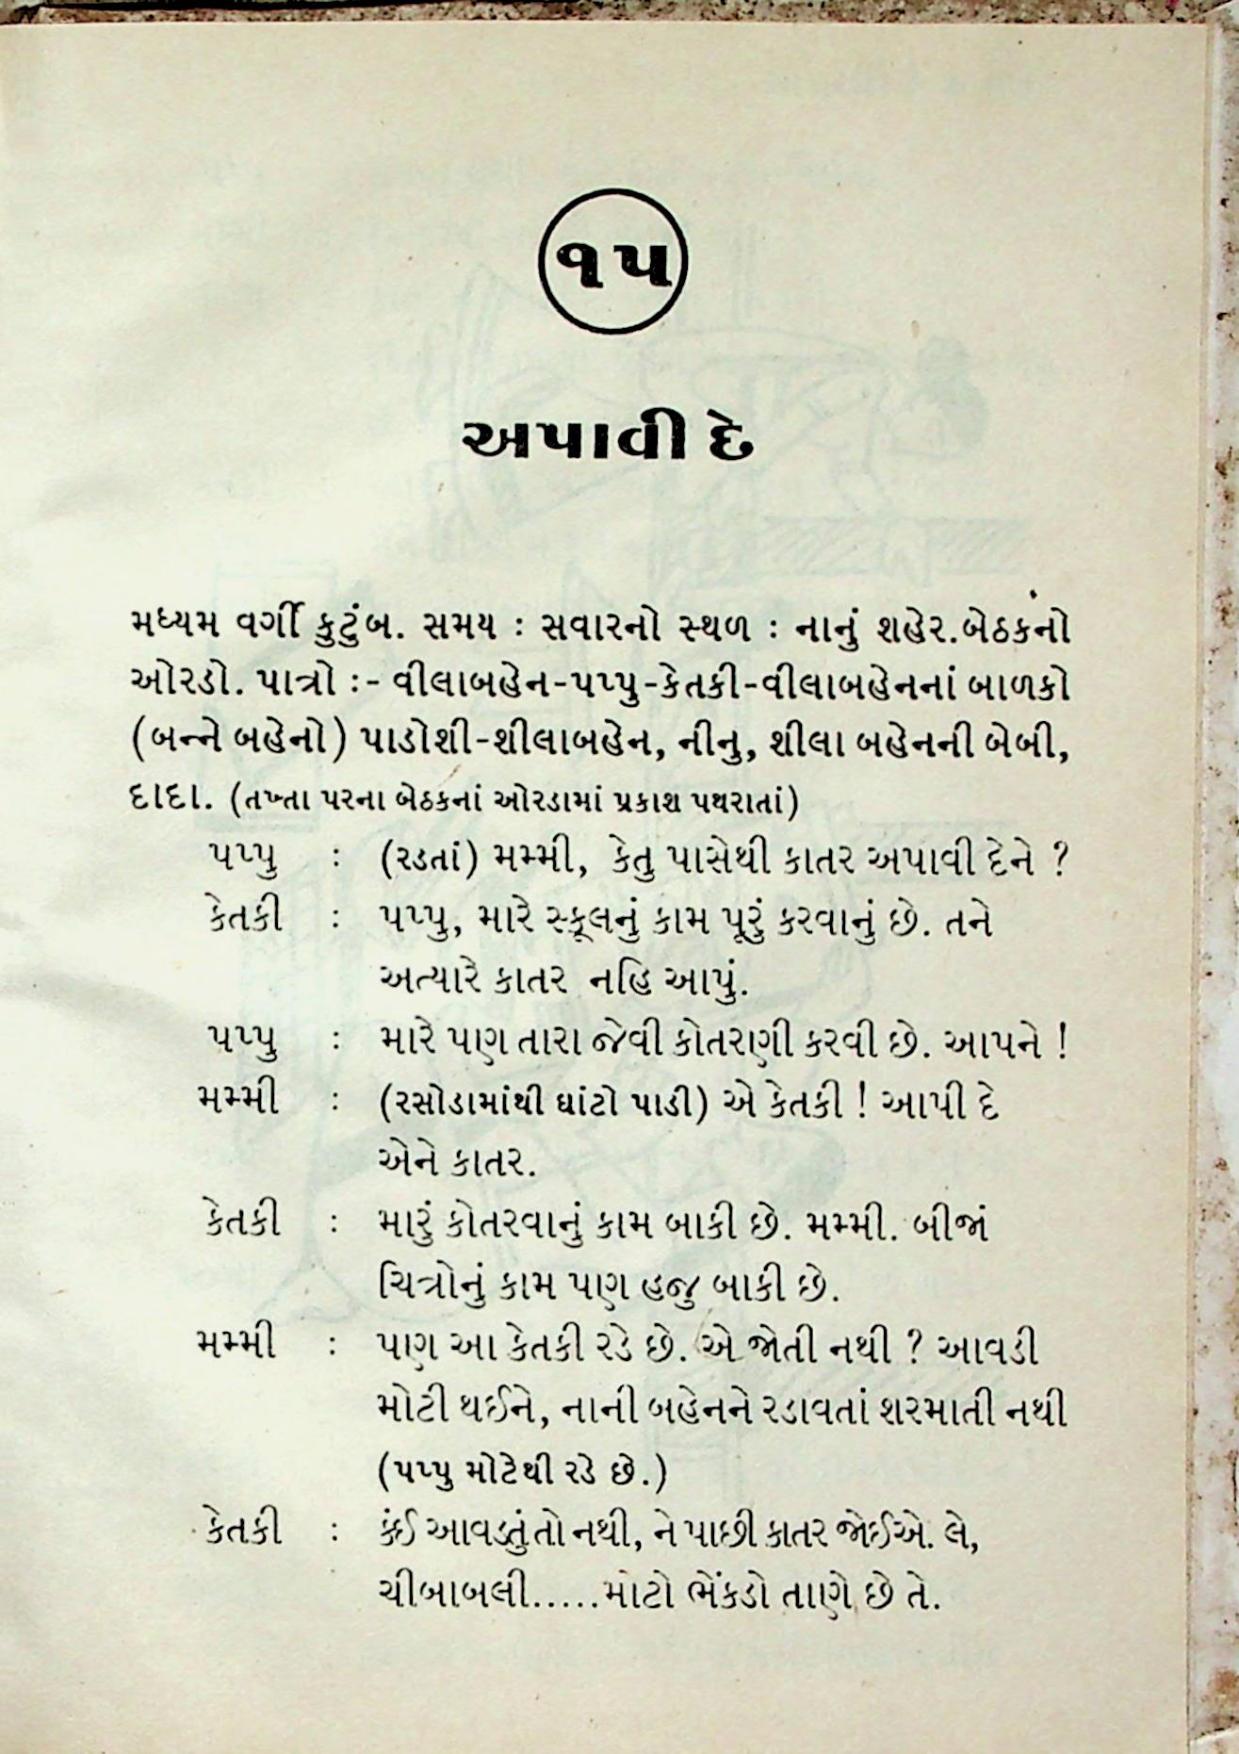 ૧૫
અપાવી દે
મધ્યમ વર્ગી કુટુંબ. સમય : સવારનો સ્થળ : નાનું શહેર.બેઠકનો
ઓરડો. પાત્રો :- વીલાબહેન-પપ્પુ-કેતકી-વીલાબહેનનાં બાળકો
(બન્ને બહેનો) પાડોશી-શીલાબહેન, નીનુ, શીલા બહેનની બેબી,
દાદા. (તખ્તા પરના બેઠકનાં ઓરડામાં પ્રકાશ પથરાતાં)
પપ્પુ : (રડતાં) મમ્મી, કેતુ પાસેથી કાતર અપાવી દેને ?
કેતકી : પપ્પુ, મારે સ્કૂલનું કામ પૂરું કરવાનું છે. તને
અત્યારે કાતર નહિ આપું.
પપ્પુ : મારે પણ તારા જેવી કોતરણી કરવી છે. આપને !
મમ્મી : (રસોડામાંથી ઘાંટો પાડી) એ કેતકી ! આપી દે
એને કાતર.
કેતકી : મારું કોતરવાનું કામ બાકી છે. મમ્મી. બીજાં
ચિત્રોનું કામ પણ હજુ બાકી છે.
મમ્મી : પણ આ કેતકી રડે છે. એ જોતી નથી ? આવડી
મોટી થઈને, નાની બહેનને રડાવતાં શરમાતી નથી
(પપ્પુ મોટેથી રડે છે.)
કેતકી : કંઈ આવડતું તો નથી, ને પાછી કાતર જોઈએ. લે,
ચીબાબલી.....મોટો ભેંકડો તાણે છે તે.